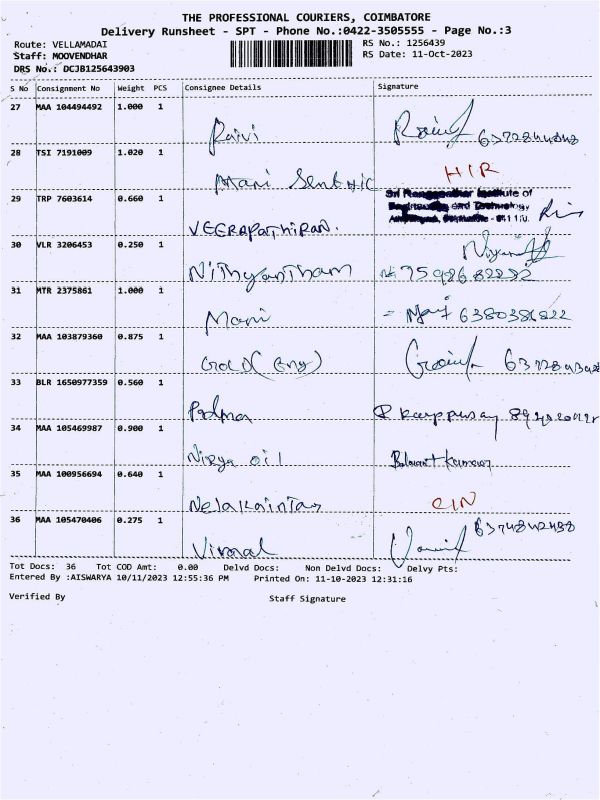 THE PROFESSIONAL COURIERS, COIMBATORE
Delivery Runsheet - SPT - Phone No.:0422-3505555 - Page No.:3
Route: VELLAMADAI RS No.: 1256439
Staff: MOOVENDHAR RS Date: 11-Oct-2023
DRS No.: DCJB125643903
S No Consignment No Weight PCS Consignee Details Signature
27 MAA 104494492 1.000 1
Raivi
28 TSI 7191009 1.020 1
Mani Senthil HIR
29 TRP 7603614 0.660 1 Sri Institute of
and Technology
VEERAPATHIRAN.
30 VLR 3206453 0.250 1
Nithyantham 7592682292
31 MTR 2375861 1.000 1
Mani - 6380386822
32 MAA 103879360 0.875 1
Gold (Eny)
33 BLR 1650977359 0.560 1
Padma
34 MAA 105469987 0.900 1
oil Kumar
35 MAA 100956694 0.640 1
36 MAA 105470406 0.275 1
Vimal
Tot Docs: 36 Tot COD Amt: 0.00 Delvd Docs: Non Delvd Docs: Delvy Pts:
Entered By :AISWARYA 10/11/2023 12:55:36 PM Printed On: 11-10-2023 12:31:16
Verified By Staff Signature